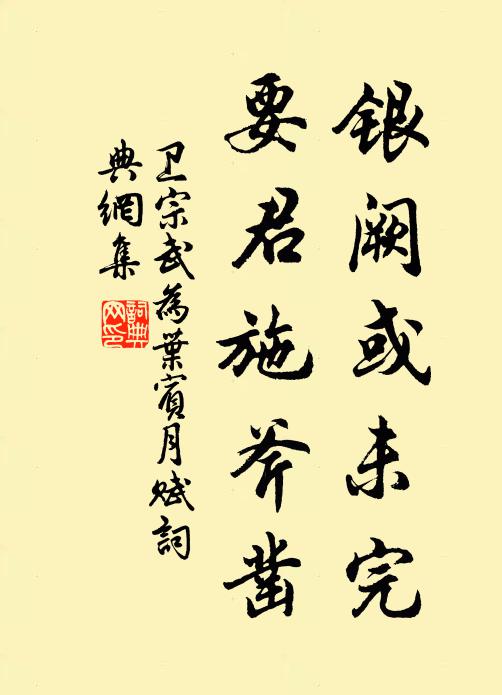 银阙或未完
要君施斧凿
卫宗武为葉賓月赋詞
典網集
詞典网印